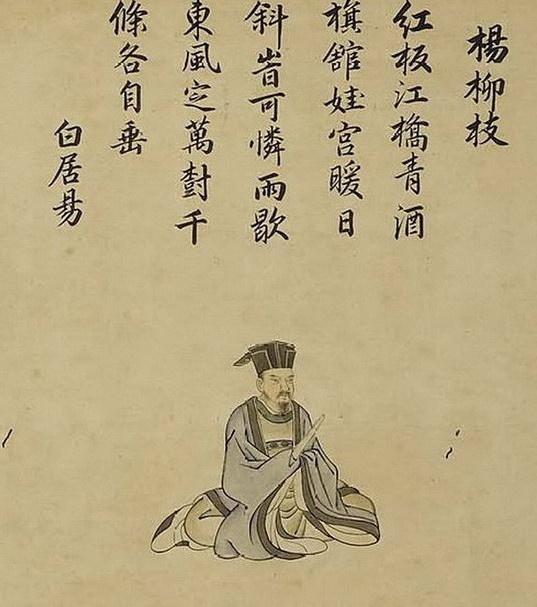 楊柳枝
紅板江橋青酒
旗舘娃宮暖日
斜旹可憐雨歇
東風定萬樹千
條各自垂
白居易